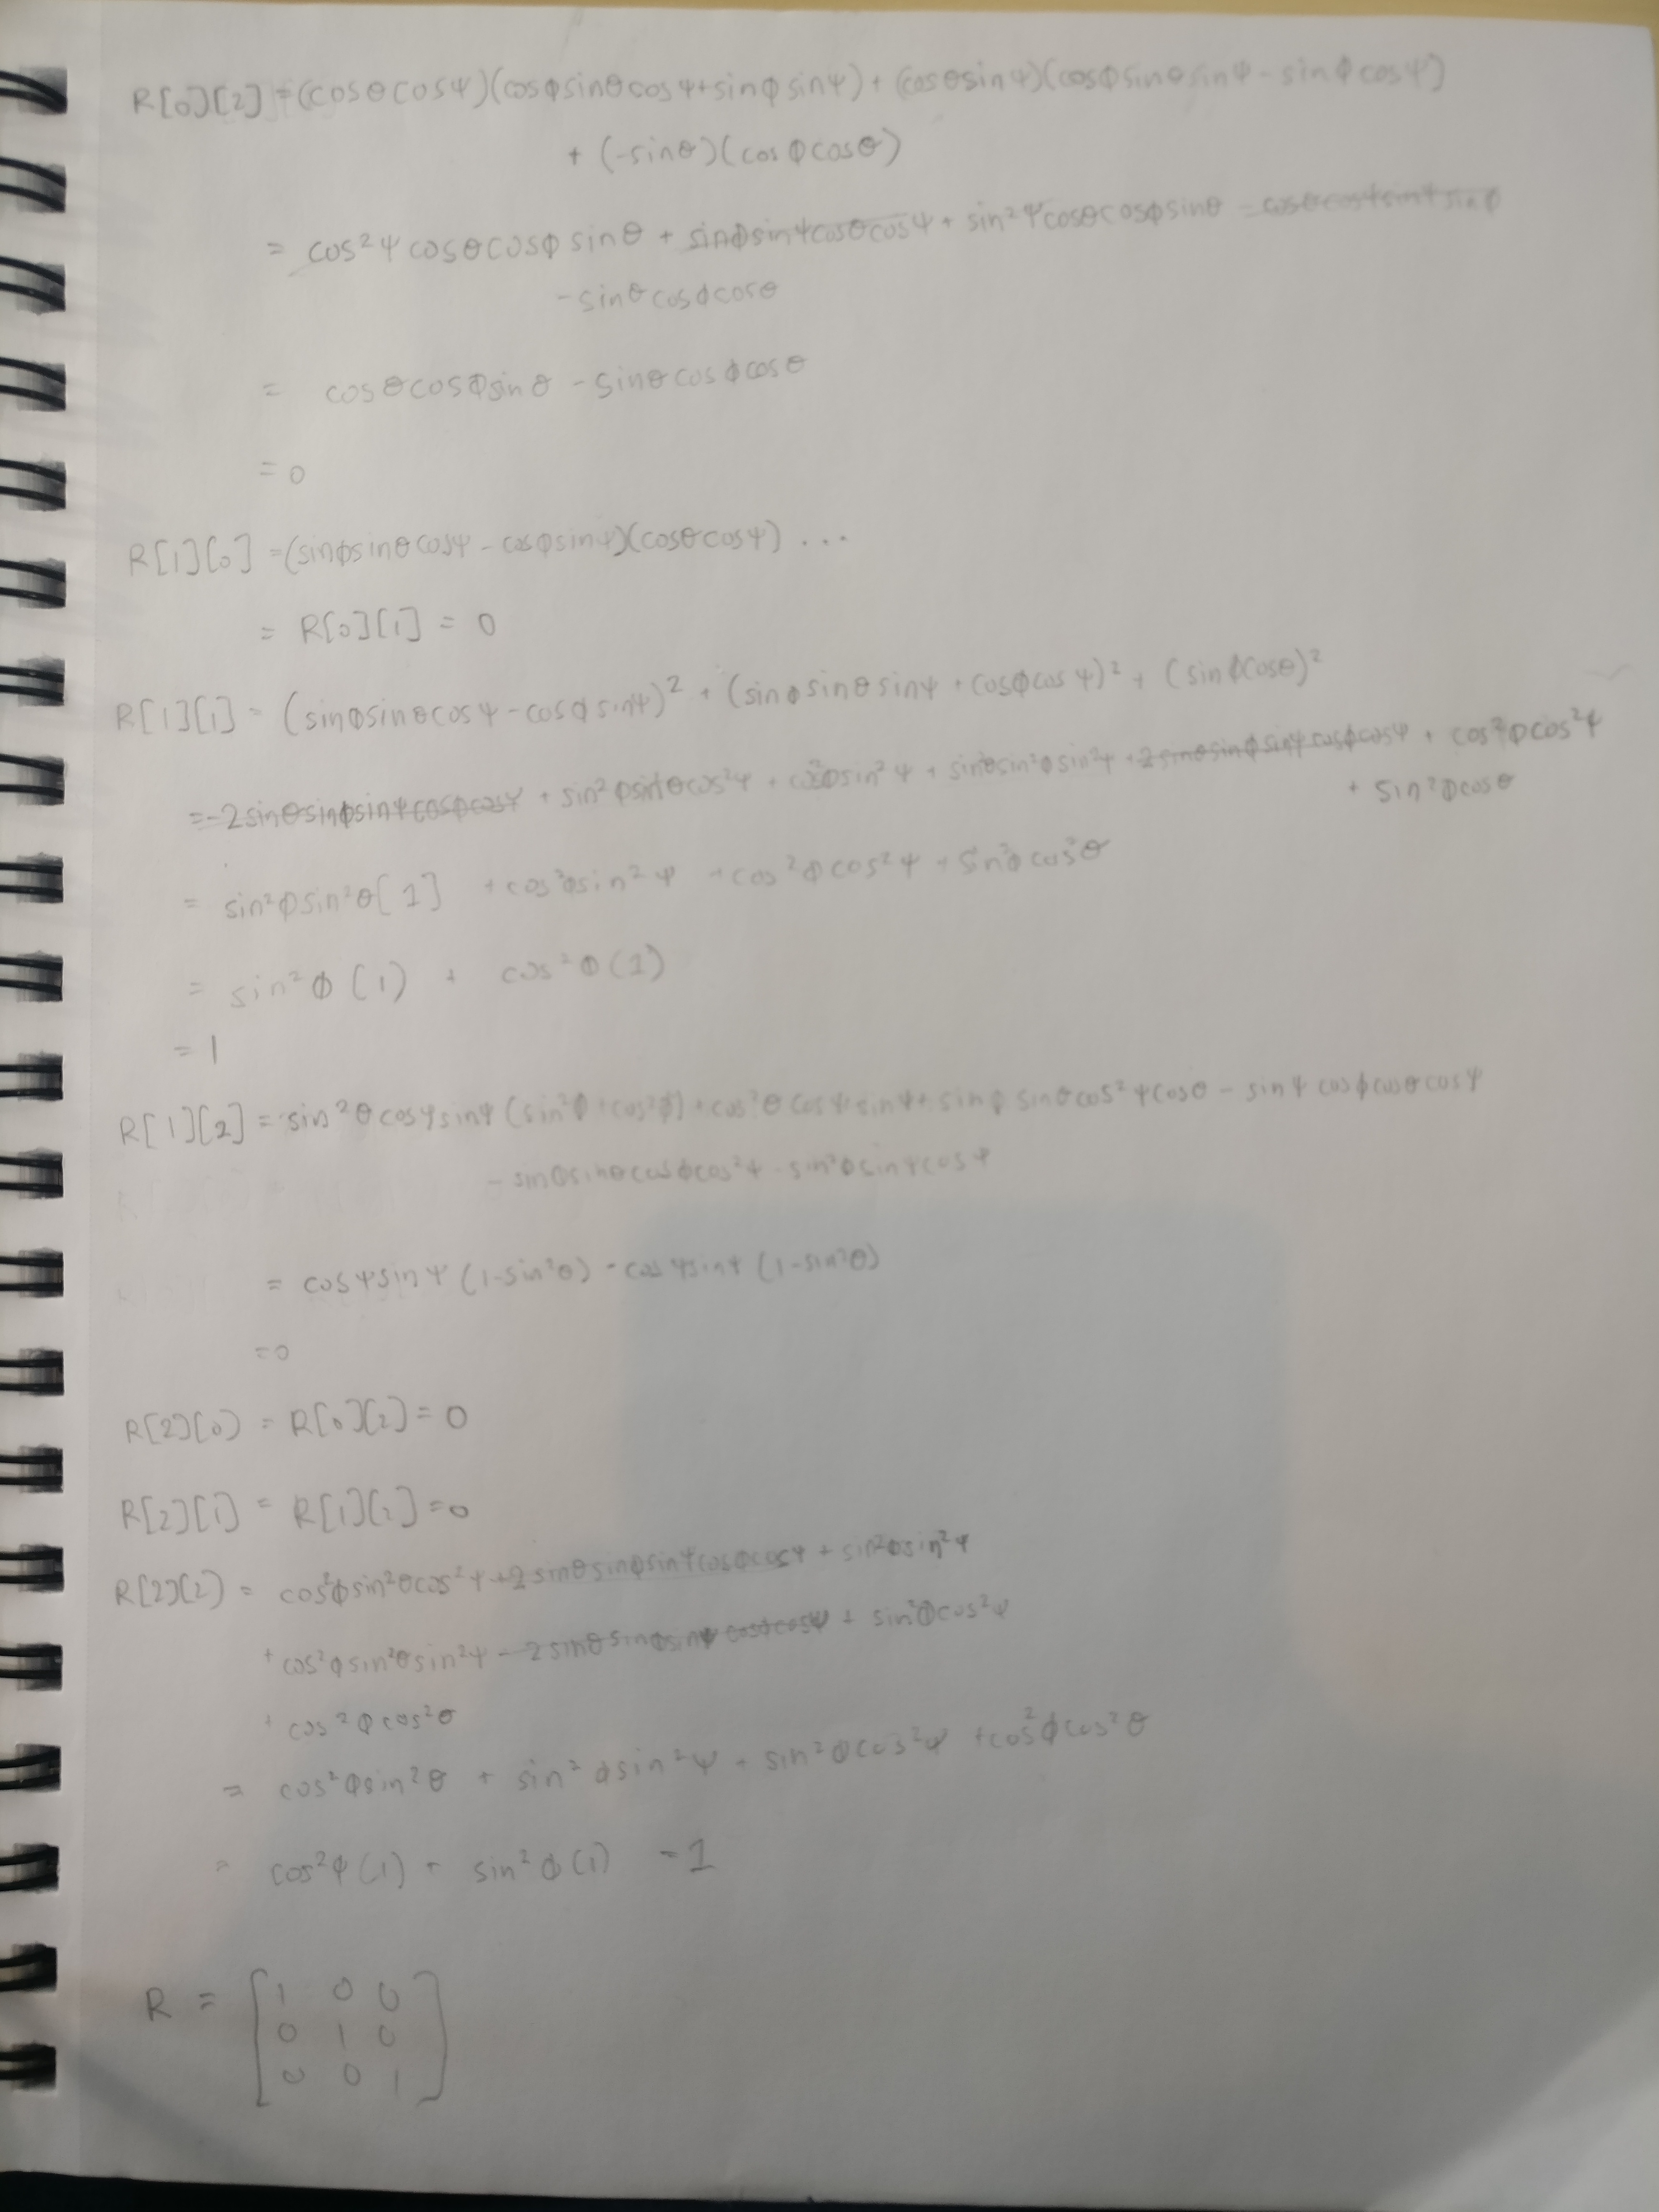 R[0][2] = (cosθcosψ)(cosϕsinθcosψ+sinϕsinψ) + (cosθsinψ)(cosϕsinθsinψ - sinϕcosψ)
+ (-sinθ)(cosϕcosθ)
= cos²ψcosθcosϕsinθ + sinϕsinψcosθcosψ + sin²ψcosθcosϕsinθ - cosθcosψsinψsinϕ
- sinθcosϕcosθ
= cosθcosϕsinθ - sinθcosϕcosθ
= 0
R[1][0] = (sinϕsinθcosψ - cosϕsinψ)(cosθcosψ) ...
= R[0][1] = 0
R[1][1] = (sinϕsinθcosψ - cosϕsinψ)² + (sinϕsinθsinψ + cosϕcosψ)² + (sinϕcosθ)²
= -2sinθsinϕsinψcosϕcosψ + sin²ϕsin²θcos²ψ + cos²ϕsin²ψ + sin²θsin²ϕsin²ψ + 2sinθsinϕsinψcosϕcosψ + cos²ϕcos²ψ
+ sin²ϕcosθ
= sin²ϕsin²θ[1] + cos²ϕsin²ψ + cos²ϕcos²ψ + sin²ϕcos²θ
= sin²ϕ(1) + cos²ϕ(1)
= 1
R[1][2] = sin²θcosψsinψ(sin²ϕ+cos²ϕ) + cos²θcosψsinψ + sinϕsinθcos²ψcosθ - sinψcosϕcosθcosψ
- sinϕsinθcosϕcos²ψ - sin²ϕsinψcosψ
= cosψsinψ(1-sin²θ) - cosψsinψ(1-sin²θ)
=0
R[2][0] = R[0][2] = 0
R[2][1] = R[1][2] = 0
R[2][2] = cos²ϕsin²θcos²ψ + 2sinθsinϕsinψcosϕcosψ + sin²ϕsin²ψ
+ cos²ϕsin²θsin²ψ - 2sinθsinϕsinψcosϕcosψ + sin²ϕcos²ψ
+ cos²ϕcos²θ
= cos²ϕsin²θ + sin²ϕsin²ψ + sin²ϕcos²ψ + cos²ϕcos²θ
= cos²ϕ(1) + sin²ϕ(1) = 1
R = [1 0 0
0 1 0
0 0 1]